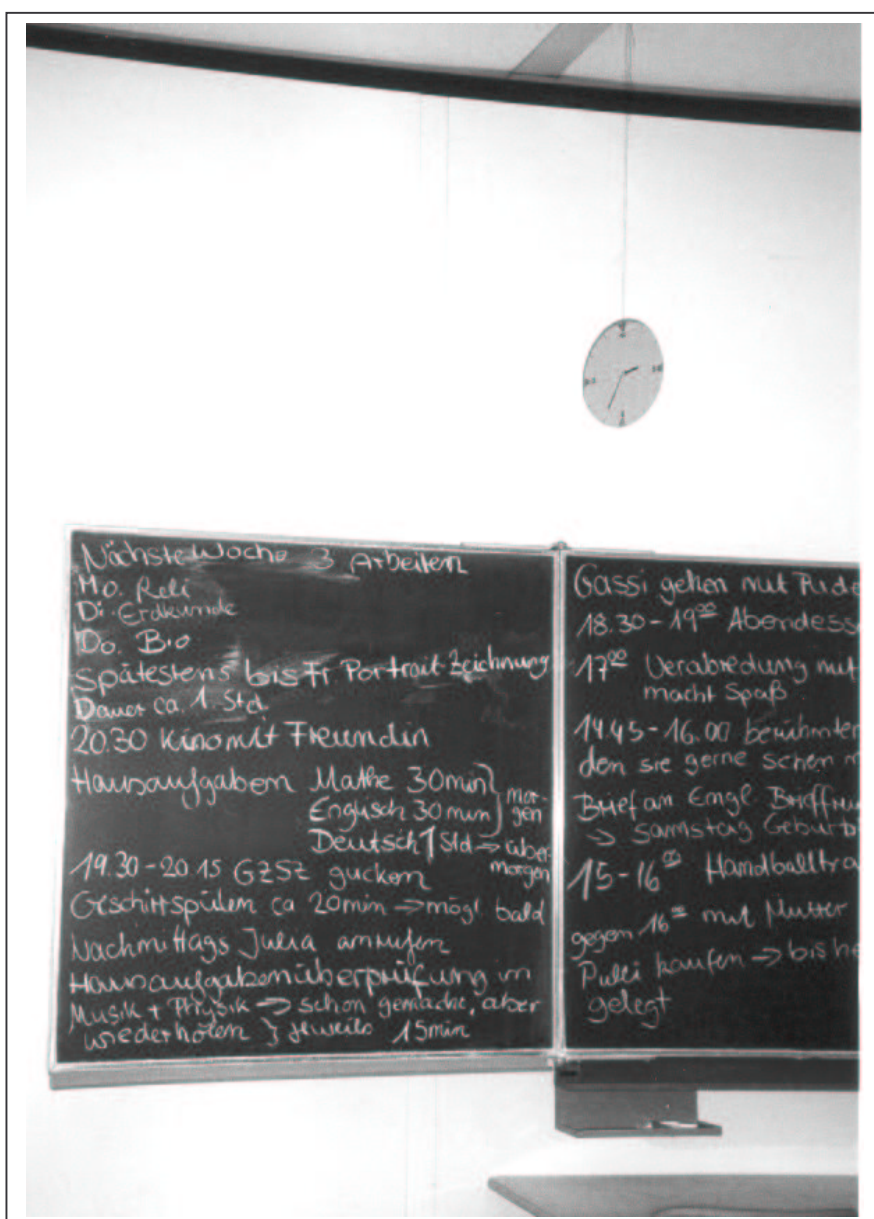 Nächste Woche 3 Arbeiten
Mo. Reli
Di. Erdkunde
Do. Bio
Spätestens bis Fr. Portrait-Zeichnung
Dauer ca. 1. Std.
20.30 Kino mit Freundin
Hausaufgaben Mathe 30min } mor-
Englisch 30min } gen
Deutsch 1 Std → über-
morgen
19.30-20.15 GZSZ gucken
Geschirrspülen ca 20min → mögl. bald
Nachmittags Julia anrufen
Hausaufgabenüberprüfung in
Musik + Physik → schon gemacht, aber
wiederholen } jeweils 15min
Gassi gehen mit
18.30-19 00 Abendess
17 00 Verabredung mit
macht Spaß
14.45-16.00 berühmter
den sie gerne sehen m
Brief an Engl. Brieffreu
→ Samstag Geburts
15-16 00 Handballtra
gegen 16 00 mit Mutter
Pulli kaufen → bis he
gelegt